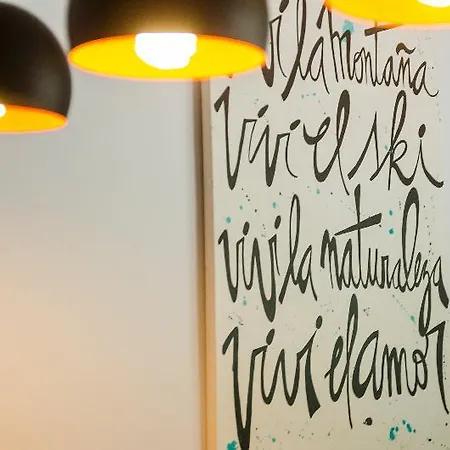 Vivi la montaña
Vivi el ski
vivi la naturaleza
Vivi el amor